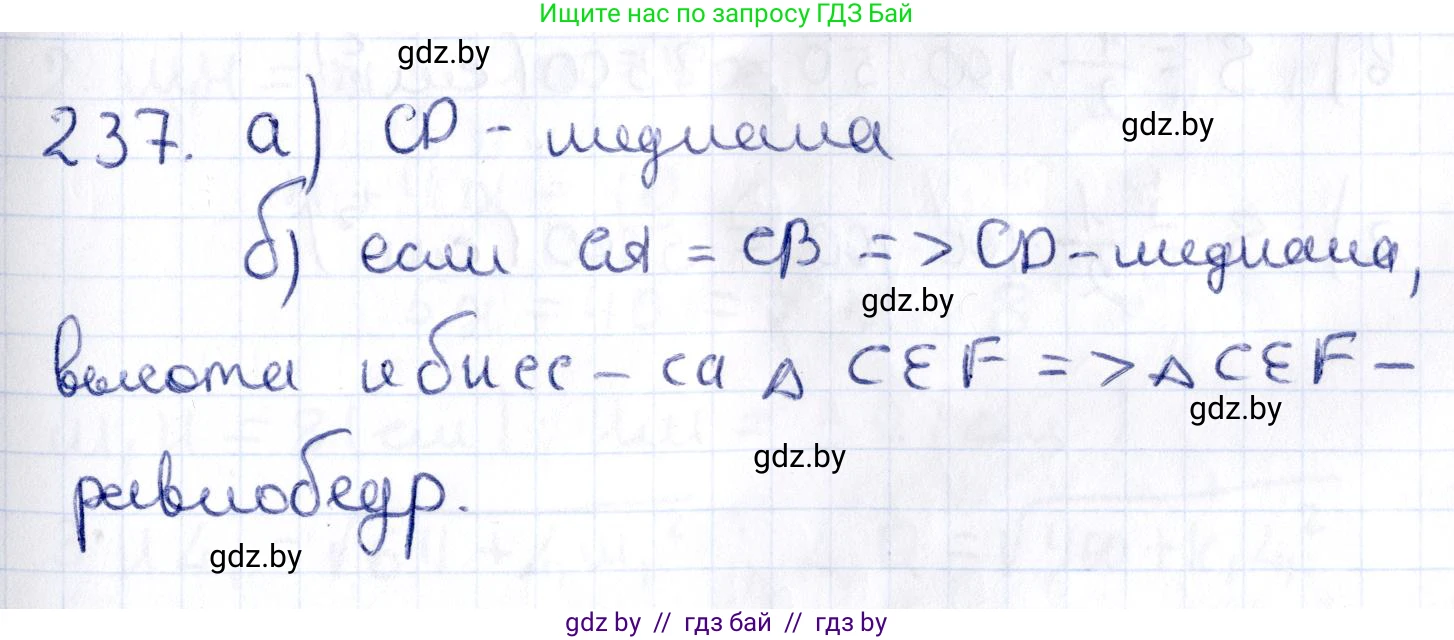 Ищите нас по запросу ГДЗ Бай
gdz.by
237. а) CD - медиана
gdz.by
б) если CA = CB => CD - медиана,
gdz.by
высота и бисс - са △ CEF => △ CEF -
gdz.by
gdz.by
равнобедр.
gdz.by
gdz by // гдз бай // гдз by